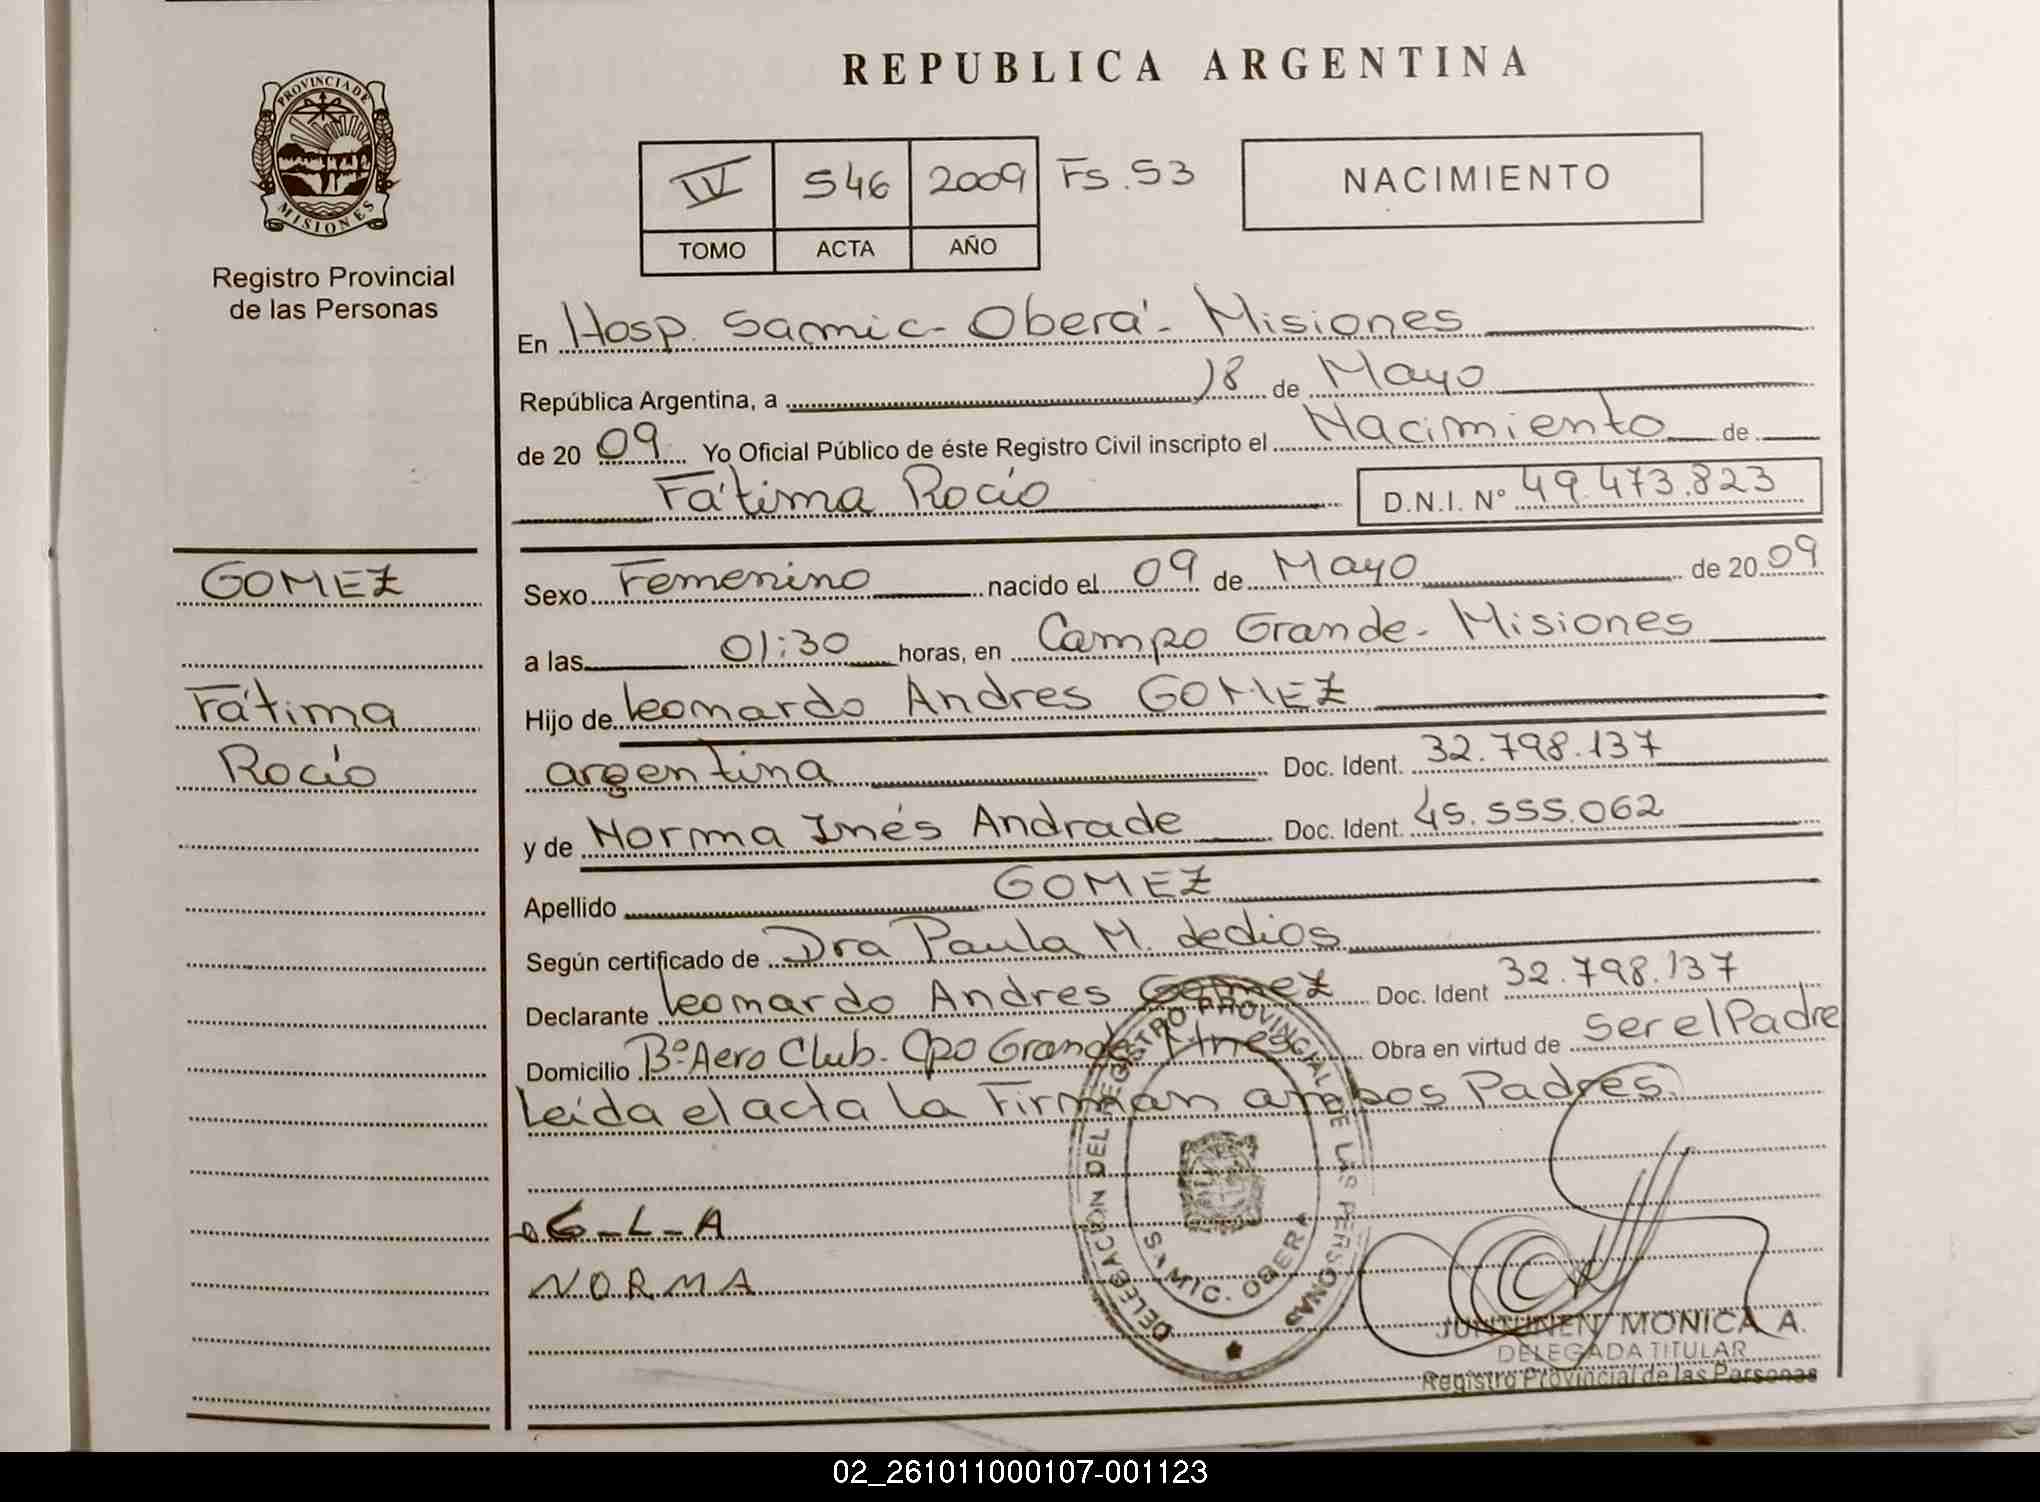 REPUBLICA ARGENTINA
PROVINCIA DE MISIONES
Registro Provincial
de las Personas
IV 546 2009 Fs. 53
TOMO ACTA AÑO
NACIMIENTO
En Hosp. Samic - Oberá - Misiones
República Argentina, a 18 de Mayo
de 20 09 Yo Oficial Público de éste Registro Civil inscripto el Nacimiento de
Fátima Rocío D.N.I. Nº 49.473.823
GOMEZ
Fátima
Rocío
Sexo Femenino nacido el 09 de Mayo de 20 09
a las 01:30 horas, en Campo Grande - Misiones
Hijo de Leonardo Andres GOMEZ
argentina Doc. Ident. 32.798.137
y de Norma Inés Andrade Doc. Ident. 45.555.062
Apellido GOMEZ
Según certificado de Dra Paula M. dedios
Declarante Leonardo Andres Gomez Doc. Ident 32.798.137
Domicilio Bº Aero Club. Cpo Grande Mnes Obra en virtud de ser el Padre
Leída el acta la Firman ambos Padres.
G-L-A
NORMA
DELEGACION DEL REGISTRO PROVINCIAL DE LAS PERSONAS
SAMIC. OBERA
JUNTUNEN MONICA A.
DELEGADA TITULAR
Registro Provincial de las Personas
02_261011000107-001123